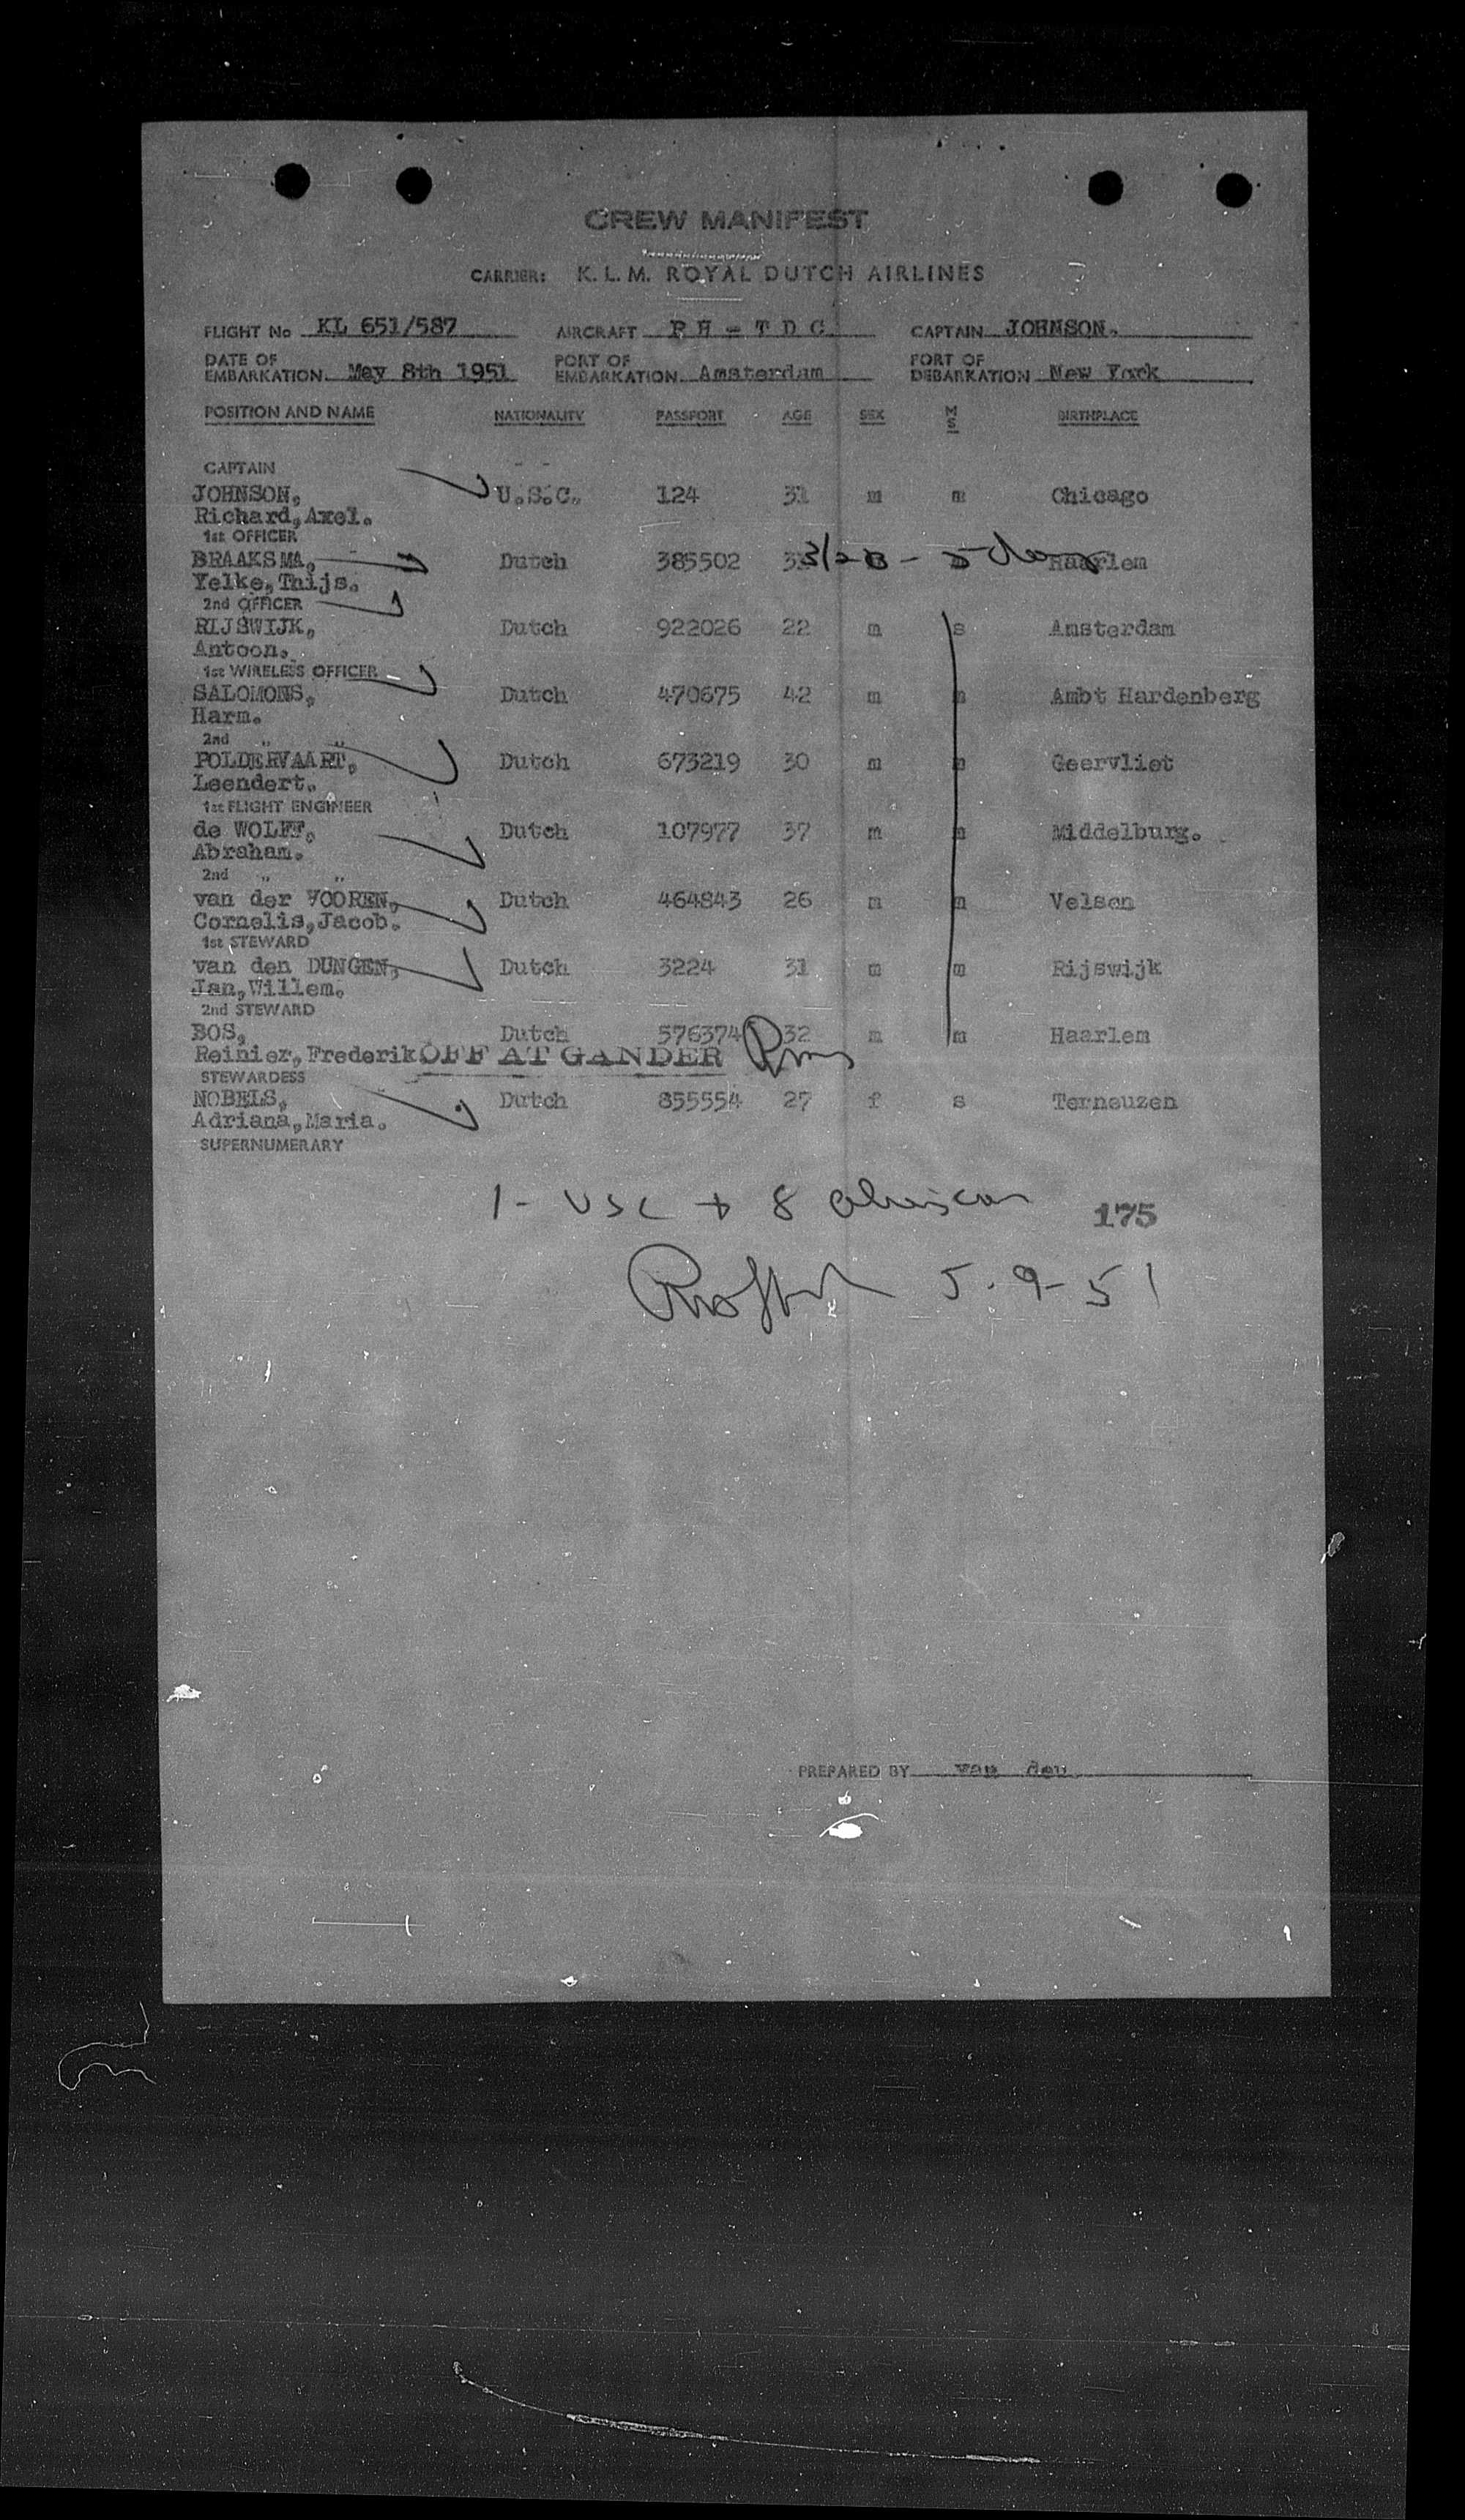 CREW MANIFEST
CARRIER: K.L.M. ROYAL DUTCH AIRLINES
FLIGHT No KL 651/587 AIRCRAFT PH - T D C CAPTAIN JOHNSON.
DATE OF EMBARKATION May 8th 1951 PORT OF EMBARKATION Amsterdam PORT OF DEBARKATION New York
POSITION AND NAME NATIONALITY PASSPORT AGE SEX M S BIRTHPLACE
CAPTAIN
JOHNSON, U.S.C. 124 31 m m Chicago
Richard, Axel.
1st OFFICER
BRAAKSMA, Dutch 385502 Haarlem
Yelke, Thijs.
2nd OFFICER
RIJSWIJK, Dutch 922026 22 m s Amsterdam
Antoon.
1st WIRELESS OFFICER
SALOMONS, Dutch 470675 42 m m Ambt Hardenberg
Harm.
2nd " "
POLDERVAART, Dutch 673219 30 m m Geervliet
Leendert.
1st FLIGHT ENGINEER
de WOLFF, Dutch 107977 37 m m Middelburg.
Abraham.
2nd " "
van der VOOREN, Dutch 464843 26 m m Velsen
Cornelis, Jacob.
1st STEWARD
van den DUNGEN, Dutch 3224 31 m m Rijswijk
Jan, Willem.
2nd STEWARD
BOS, Dutch 576374 32 m m Haarlem
Reinier, Frederik OFF AT GANDER
STEWARDESS
NOBELS, Dutch 855554 27 f s Terneuzen
Adriana, Maria.
SUPERNUMERARY
1 - USC + 8 175
5-9-51
PREPARED BY van den